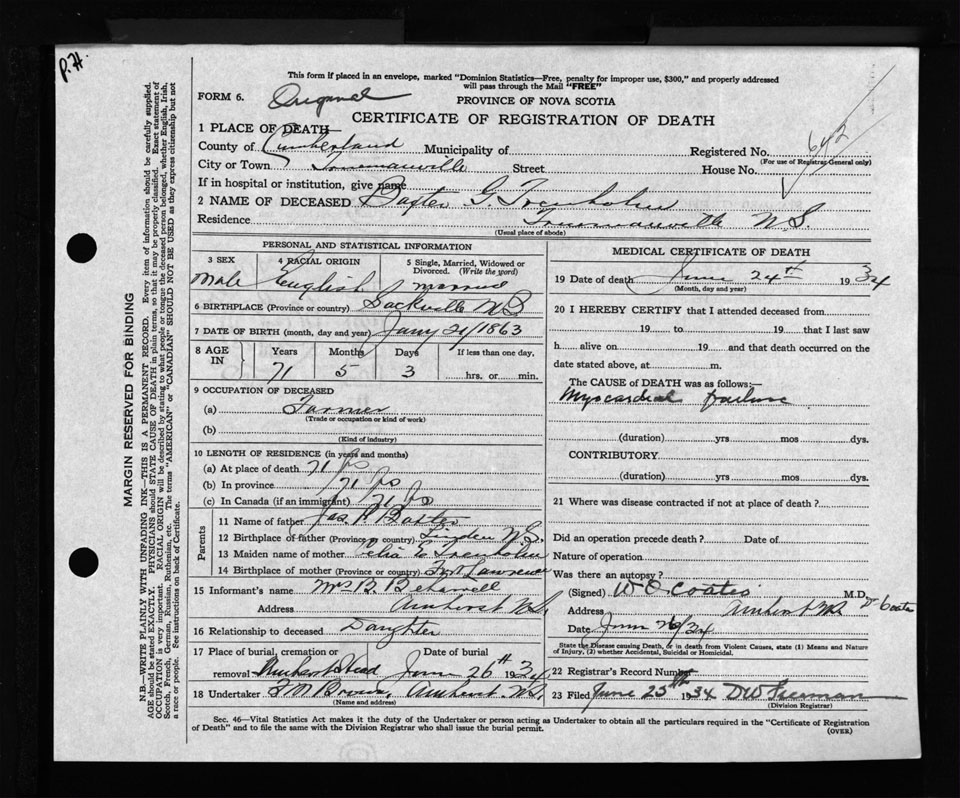 P.H.
This form if placed in an envelope, marked "Dominion Statistics—Free, penalty for improper use, $300," and properly addressed
will pass through the Mail "FREE"
FORM 6. Original
PROVINCE OF NOVA SCOTIA
CERTIFICATE OF REGISTRATION OF DEATH
1 PLACE OF DEATH—
County of Cumberland Municipality of Registered No. 642
(For use of Registrar General only)
City or Town Truemanville Street House No.
If in hospital or institution, give name
2 NAME OF DECEASED G. Trenholm
Residence Truemanville N.S.
(Usual place of abode)
PERSONAL AND STATISTICAL INFORMATION
3 SEX 4 RACIAL ORIGIN 5 Single, Married, Widowed or Divorced. (Write the word)
Male English married
6 BIRTHPLACE (Province or country) Sackville
7 DATE OF BIRTH (month, day and year) Jany 21/1863
8 AGE IN Years Months Days If less than one day,
71 5 3 hrs. or min.
9 OCCUPATION OF DECEASED
(a) Farmer
(Trade or occupation or kind of work)
(b)
(Kind of industry)
10 LENGTH OF RESIDENCE (in years and months)
(a) At place of death 71 yrs
(b) In province 71 yrs
(c) In Canada (if an immigrant) 71 yrs
Parents
11 Name of father Jas
12 Birthplace of father (Province or country) Linden N.S.
13 Maiden name of mother Trenholm
14 Birthplace of mother (Province or country) Fort Lawrence
15 Informant's name Mrs B. B.
Address Amherst N.S.
16 Relationship to deceased Daughter
17 Place of burial, cremation or removal Date of burial
Amherst Head June 26th 1934
18 Undertaker Brown, Amherst N.S.
(Name and address)
MEDICAL CERTIFICATE OF DEATH
19 Date of death June 24th 1934
(Month, day and year)
20 I HEREBY CERTIFY that I attended deceased from
19 to 19 that I last saw
h alive on 19 and that death occurred on the
date stated above, at m.
The CAUSE OF DEATH was as follows:—
Myocardial failure
(duration) yrs mos dys.
CONTRIBUTORY
(duration) yrs mos dys.
21 Where was disease contracted if not at place of death?
Did an operation precede death? Date of
Nature of operation
Was there an autopsy?
(Signed) W O Coates M.D.
Address Amherst NS
Date June 26/34
State the Disease causing Death, or in death from Violent Causes, state (1) Means and Nature of Injury, (2) whether Accidental, Suicidal or Homicidal.
22 Registrar's Record Number
23 Filed June 25th 1934 DW Freeman
(Division Registrar)
Sec. 46—Vital Statistics Act makes it the duty of the Undertaker or person acting as Undertaker to obtain all the particulars required in the "Certificate of Registration
of Death" and to file the same with the Division Registrar who shall issue the burial permit.
(OVER)
MARGIN RESERVED FOR BINDING
N.B.—WRITE PLAINLY WITH UNFADING INK—THIS IS A PERMANENT RECORD. Every item of information should be carefully supplied.
AGE should be stated EXACTLY. PHYSICIANS should STATE CAUSE OF DEATH in plain terms, so that it may be properly classified. Exact statement of
OCCUPATION is very important. RACIAL ORIGIN will be described by stating to what people or tongue the deceased person belonged, whether English, Irish,
Scotch, French, German, Russian, Ruthenian, etc. The terms "AMERICAN" or "CANADIAN" SHOULD NOT BE USED as they express citizenship but not
a race or people. See instructions on back of Certificate.